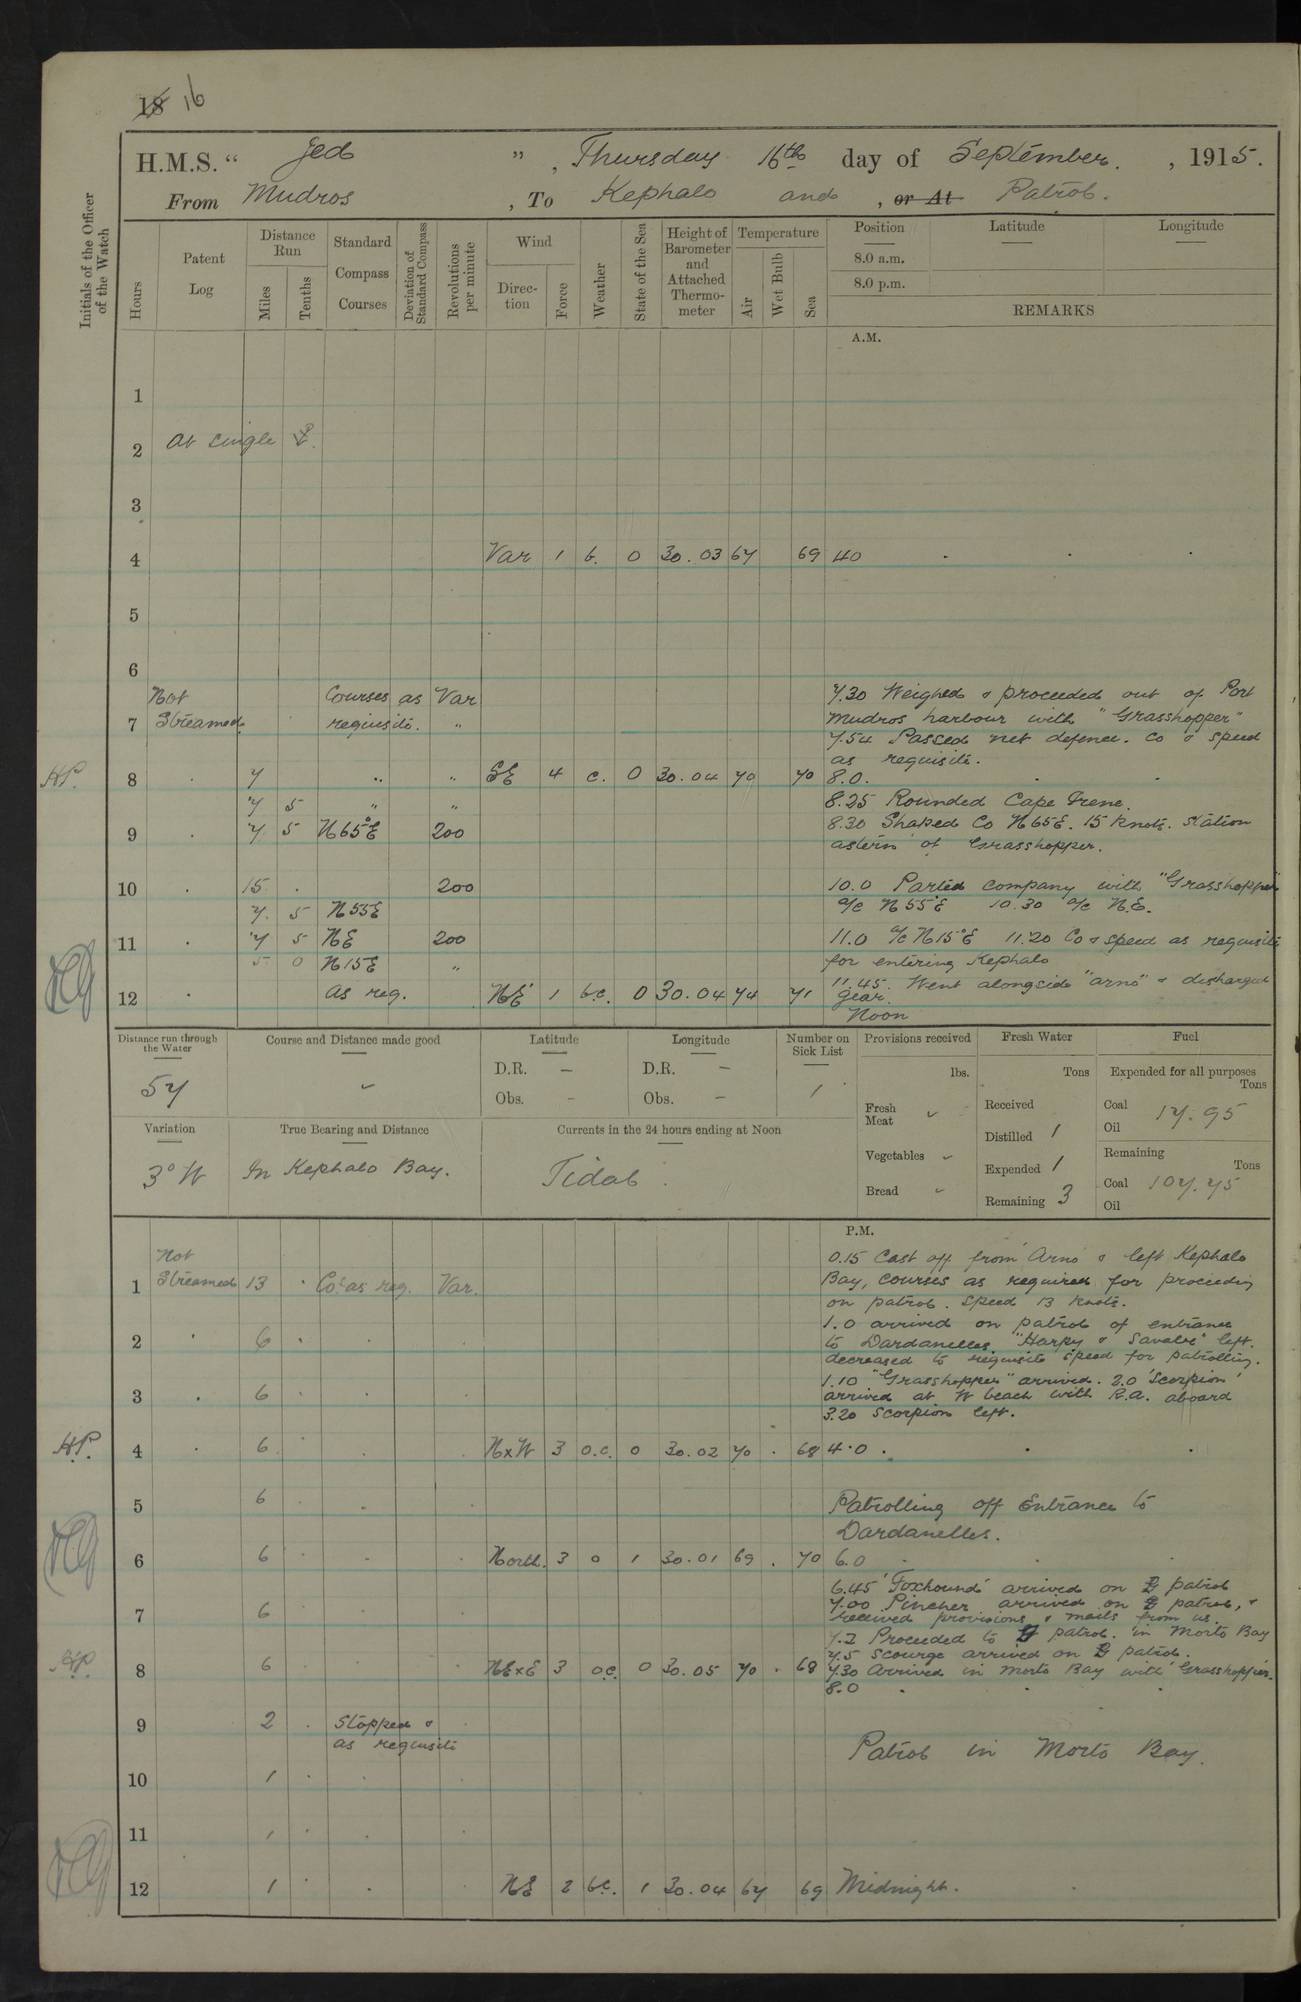 18 16
H.M.S. “ Jed ” , Thursday 16th day of September. , 1915.
From Mudros , To Kephalo and , or At Patrol.
Initials of the Officer of the Watch
Hours
Patent Log
Distance Run
Miles
Tenths
Standard Compass Courses
Deviation of Standard Compass
Revolutions per minute
Wind
Direction
Force
Weather
State of the Sea
Height of Barometer and Attached Thermometer
Temperature
Air
Wet Bulb
Sea
Position
8.0 a.m.
8.0 p.m.
Latitude
Longitude
REMARKS
A.M.
1
2 At single ⚓.
3
4 Var 1 b. 0 30.03 67 69 40
5
6
Not Courses as Var 7.30 Weighed & proceeded out of Port
7 Streamed. requisite. " Mudros harbour with "Grasshopper"
7.54 Passed net defence. Co & speed
as requisite.
HP. 8 7 " " SE 4 c. 0 30.04 70 70 8.0.
7 5 " " 8.25 Rounded Cape Irene.
9 7 5 N65°E 200 8.30 Shaped Co N65E. 15 knots. Station
astern of Grasshopper.
10 15 . 200 10.0 Parted company with "Grasshopper"
7. 5 N55E a/c N55°E 10.30 a/c N.E.
11 7 5 NE 200 11.0 a/c N15°E 11.20 Co & speed as requisite
5 0 N15E " for entering Kephalo
11.45. Went alongside "Arno" & discharged
12 as req. NE 1 b.c. 0 30.04 74 71 gear.
Noon
Distance run through the Water
57
Course and Distance made good
Latitude
D.R. –
Obs. –
Longitude
D.R. –
Obs. –
Number on Sick List
1
Provisions received
lbs.
Fresh Meat
Vegetables
Bread
Fresh Water
Tons
Received
Distilled 1
Expended 1
Remaining 3
Fuel
Expended for all purposes
Tons
Coal 17.95
Oil
Remaining
Tons
Coal 107.75
Oil
Variation
3° W
True Bearing and Distance
In Kephalo Bay.
Currents in the 24 hours ending at Noon
Tidal.
P.M.
Not 0.15 Cast off from Arno & left Kephalo
1 Streamed 13 . Cos. as req. Var. Bay, courses as required for proceeding
on patrol. Speed 13 knots.
1.0 arrived on patrol of entrance
2 6 . to Dardanelles. "Harpy & Savage" left.
decreased to requisite speed for patrolling.
1.10 "Grasshopper" arrived. 2.0 'Scorpion'
3 6 . arrived at W beach with R.A. aboard
3.20 Scorpion left.
H.P. 4 6 . NxW 3 o.c. 0 30.02 70 . 68 4.0 .
5 6 Patrolling off Entrance to
Dardanelles.
6 6 North. 3 o 1 30.01 69 . 70 6.0
6.45 'Foxhound' arrived on patrol
7.00 Pincher arrived on patrol, &
7 6 received provisions & mails from us.
7.2 Proceeded to patrol. in Morto Bay
7.5 Scourge arrived on patrol.
H.P. 8 6 NExE 3 o.c. 0 30.05 70 . 68 7.30 Arrived in Morto Bay with Grasshopper.
8.0
9 2 . Stopped &
as requisite
Patrol in Morto Bay.
10 1
11 1
12 1 NE 2 b.c. 1 30.04 67 69 Midnight.